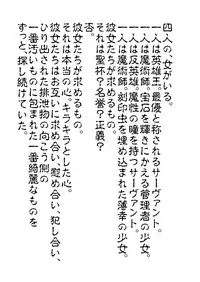 四人の「女」がいる。
一人は英雄王。最優と称されるサーヴァント。
一人は魔術師。宝石を輝きにかえる管理者の少女。
一人は反英雄。魔性の瞳を持つサーヴァント。
一人は魔術師。刻印虫を埋め込まれた薄幸の少女。
彼女たちが求めるもの。
それは聖杯?名誉?正義?
否。
彼女たちが求めるもの。
それは本当の心。キラキラとした心。
彼女たちはお互いに求め合い、慰め合い、犯し合い、
どろどろとした排泄物の向こう側の
一番汚いものに包まれた一番綺麗なものを
ずっと、探し続けていた。